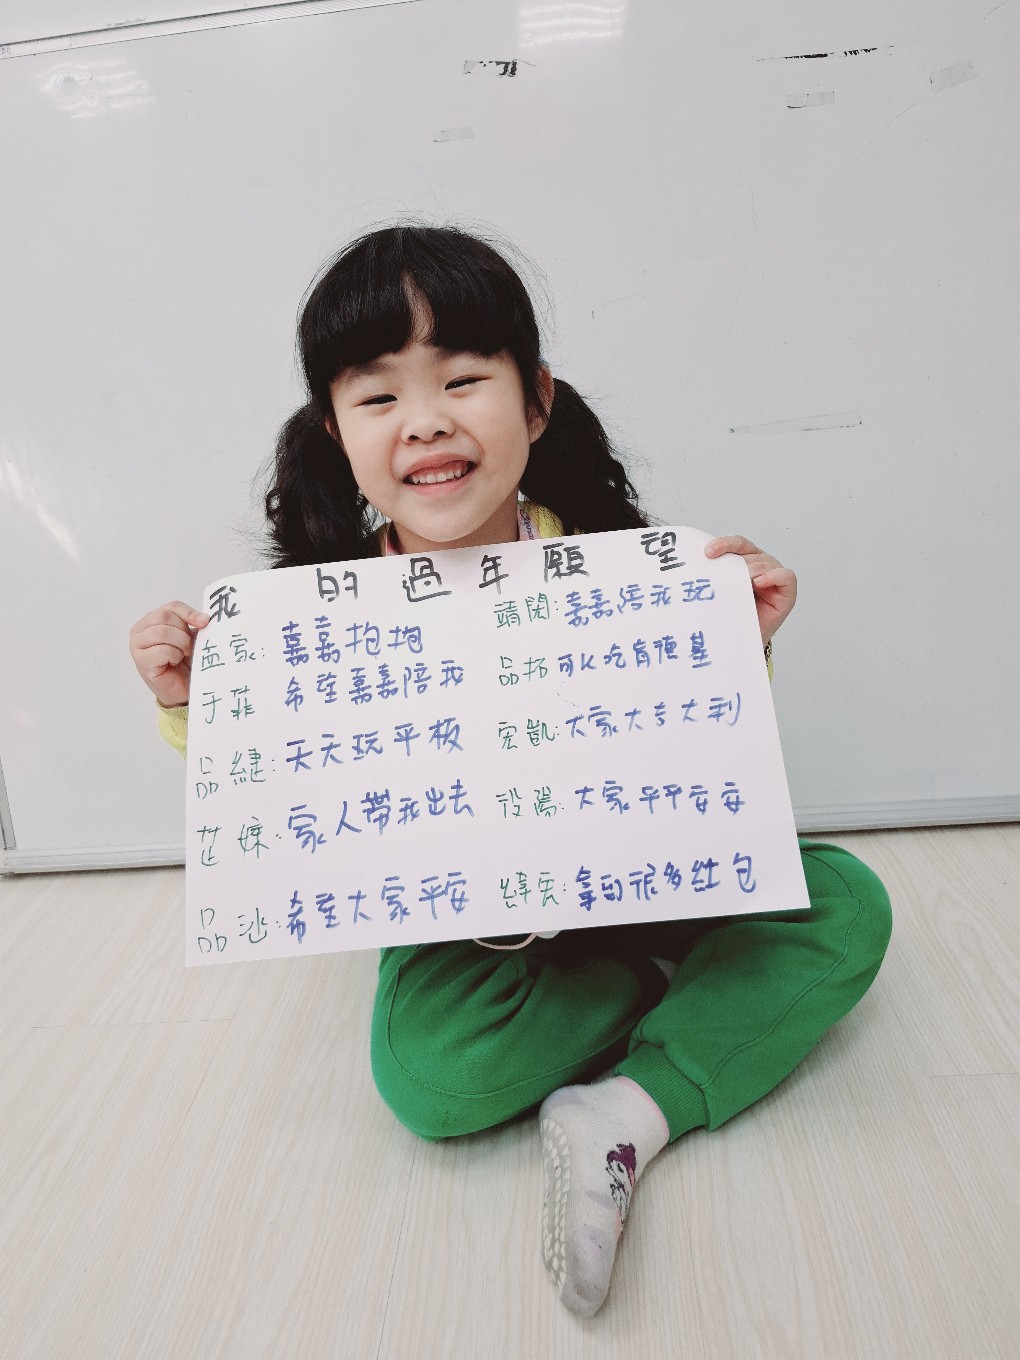 我的過年願望
家: 嘉嘉抱抱
于菲 希望嘉嘉陪我
品緁: 天天玩平板
芷嫀: 家人帶我出去
品沙: 希望大家平安
靖閎: 嘉嘉陪我玩
品拓 可以吃肯德基
宏凱: 大家大吉大利
役陽: 大家平平安安
緯宏: 拿到很多紅包